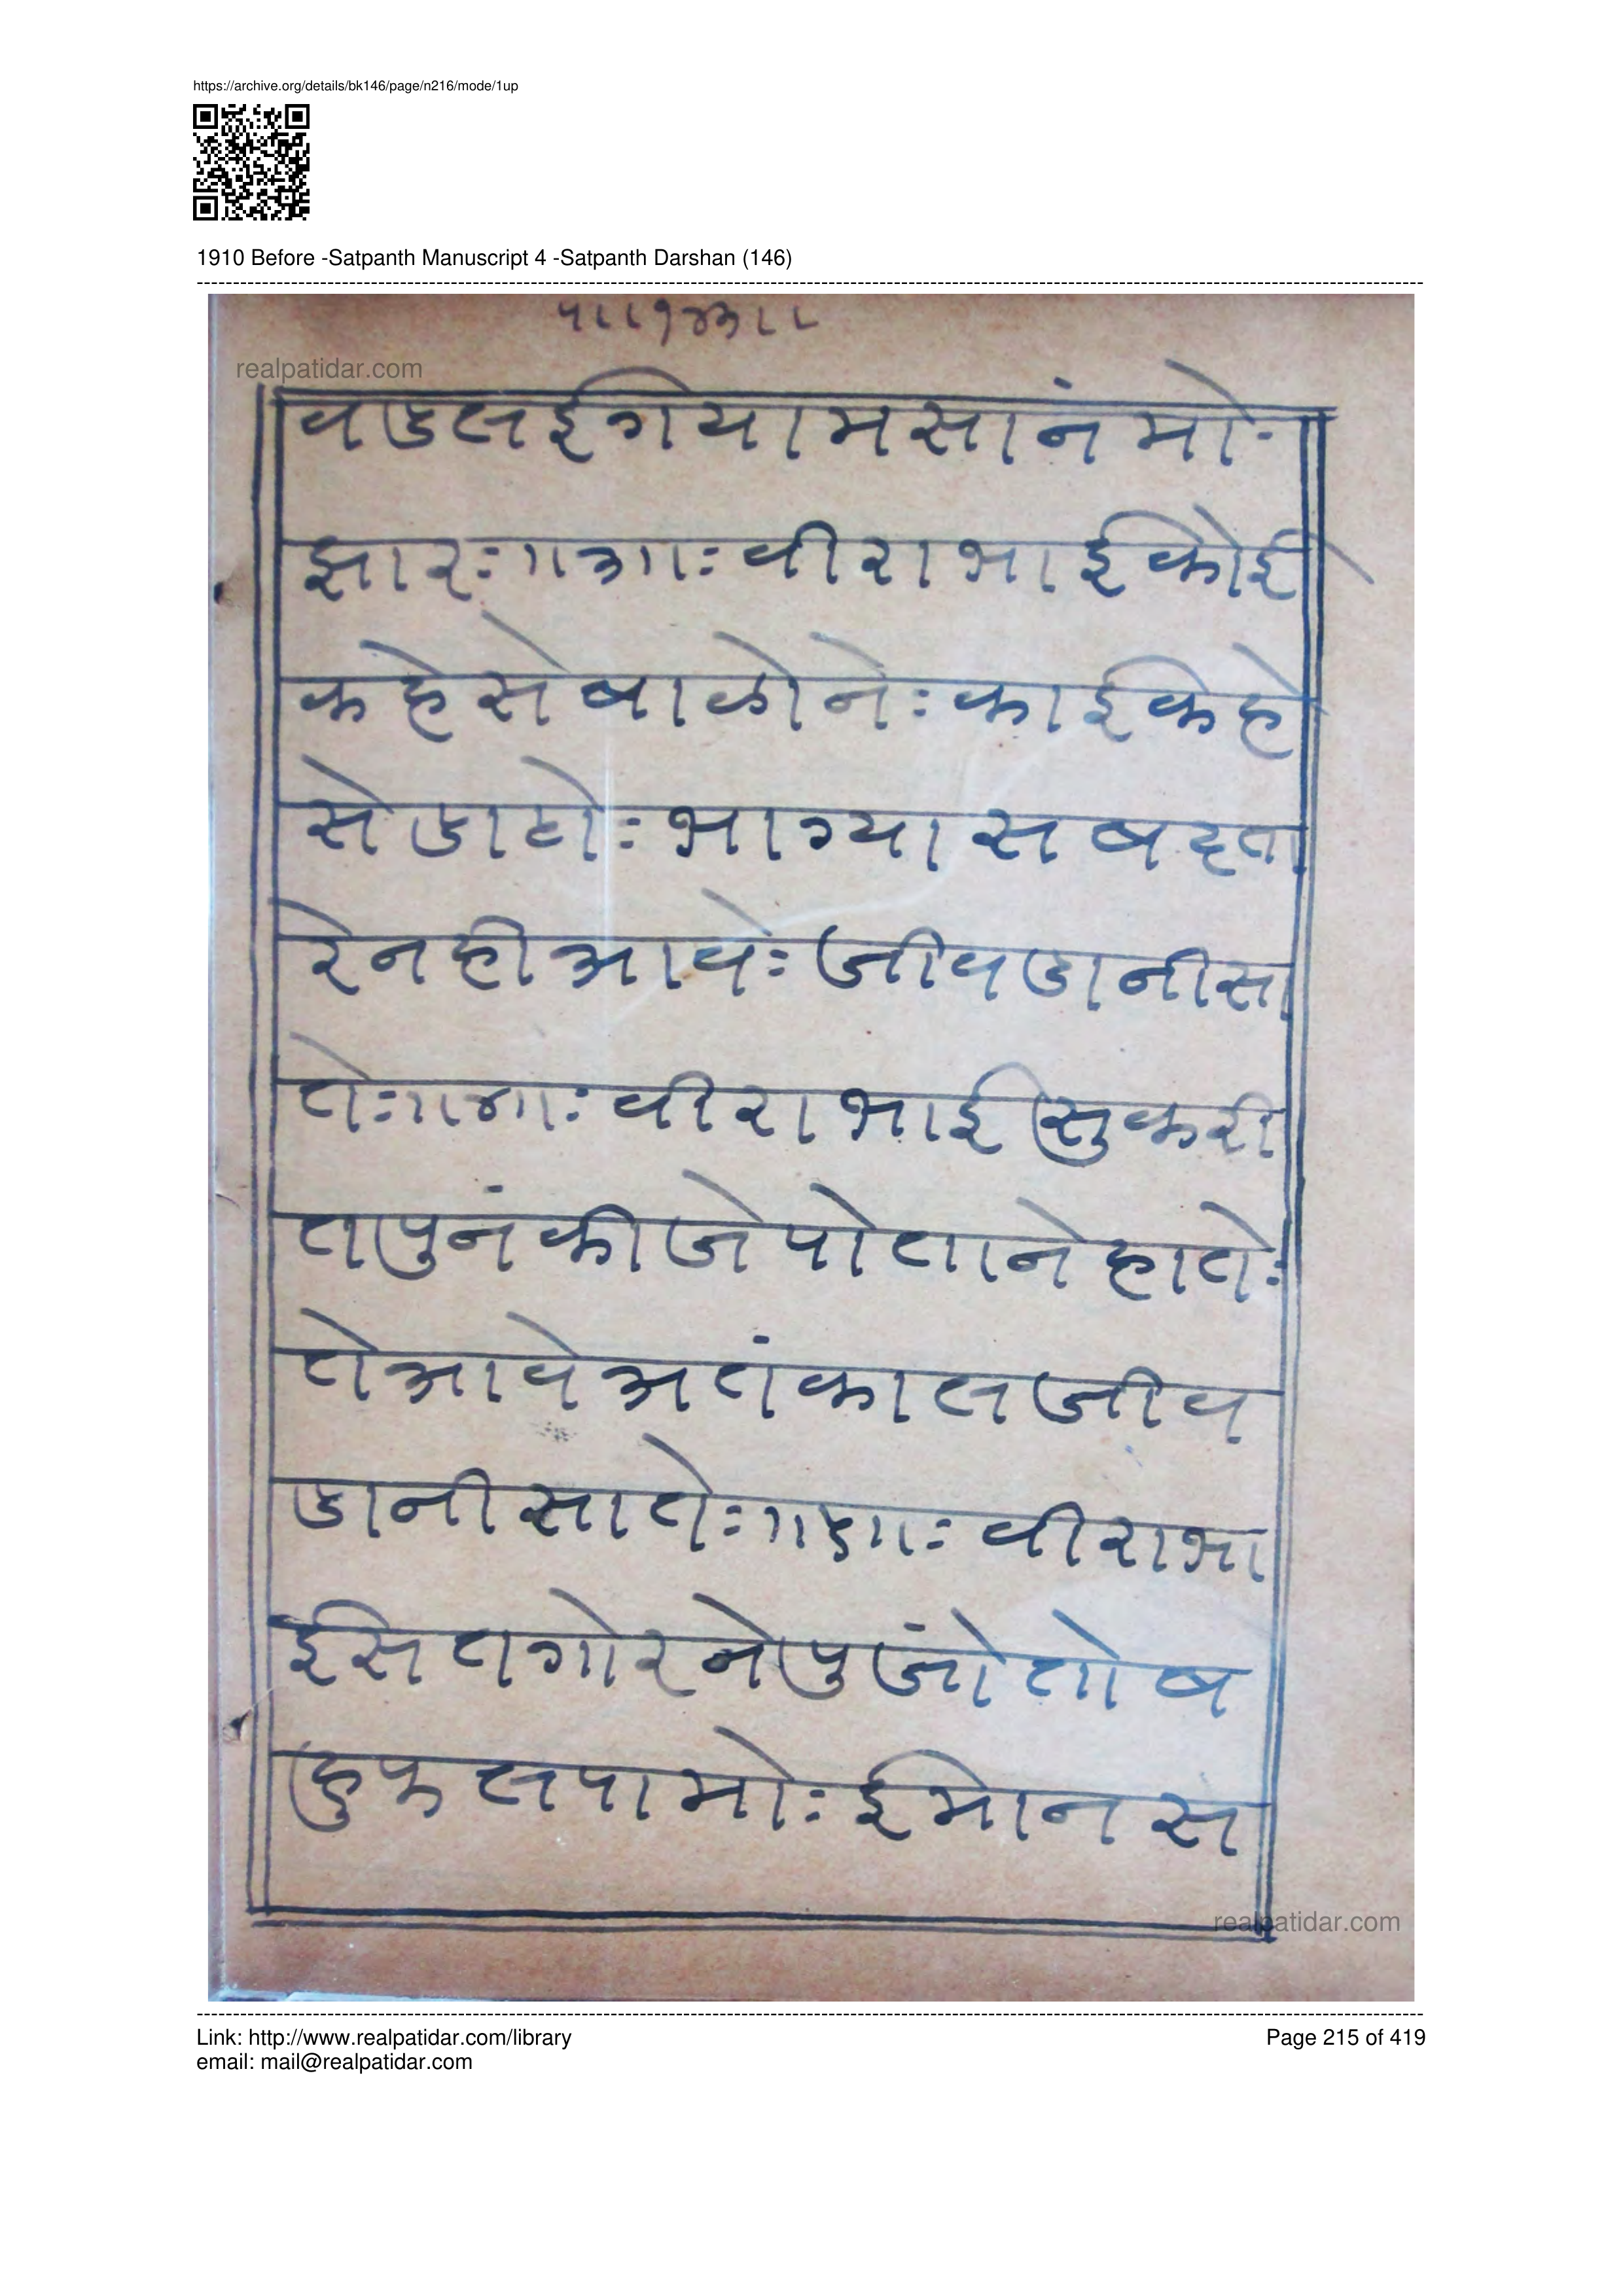 https://archive.org/details/bk146/page/n216/mode/1up
1910 Before -Satpanth Manuscript 4 -Satpanth Darshan (146)
realpatidar.com
वडलईगयामसानंमो-
झारः॥३॥ःवीराभाईकोई
कहेसेबाळोनेःकाईकहे
सेडाटोःभाग्यासबदता
रेनहीआवेःजीवडानीसा
तेः॥४॥ःवीराभाईसुकरी
तपुनंकीजेपोतानेहातेः
तेआवेअतंकालजीव
डानीसातेः॥५॥ःवीराभा
ईसतगोरनेपुजोंतोब
हुफलपामोःईमानस
realpatidar.com
Link: http://www.realpatidar.com/library
Page 215 of 419
email: mail@realpatidar.com